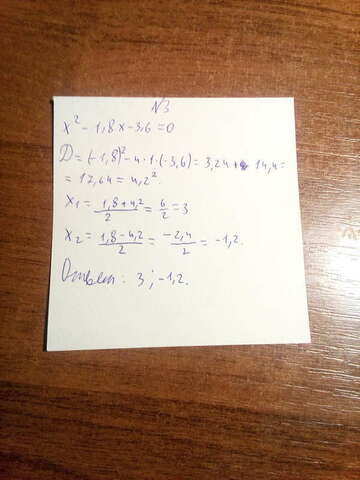 N3
x² - 1,8x - 3,6 = 0
D = (-1,8)² - 4·1·(-3,6) = 3,24 + 14,4 =
= 17,64 = 4,2².
x₁ = (1,8 + 4,2)/2 = 6/2 = 3
x₂ = (1,8 - 4,2)/2 = -2,4/2 = -1,2.
Ответ: 3; -1,2.